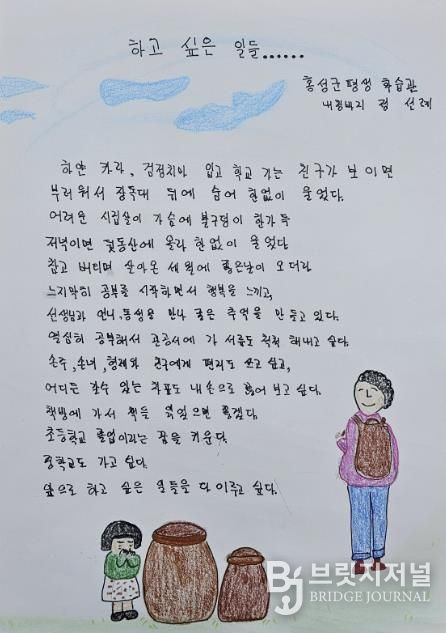 하고 싶은 일들......
홍성군 평생 학습관
내림바지 정 선례
하얀 카라, 검정치마 입고 학교 가는 친구가 보이면
부러워서 장독대 뒤에 숨어 한없이 울었다.
어려운 시집살이 가슴에 불구덩이 한가득
저녁이면 뒷동산에 올라 한없이 울었다
참고 버티며 살아온 세월에 좋은날이 오더라
느지막히 공부를 시작하면서 행복을 느끼고,
선생님과 언니, 동생을 만나 좋은 추억을 만들고 있다.
열심히 공부해서 관공서에 가 서류도 척척 해내고 싶다.
손주, 손녀, 형제와 친구에게 편지도 쓰고 싶고,
어디든 갈수 있는 차표도 내 손으로 끊어 보고 싶다.
책방에 가서 책을 읽었으면 좋겠다.
초등학교 졸업이라는 꿈을 키운다.
중학교도 가고 싶다.
앞으로 하고 싶은 일들을 다 이루고 싶다.
BJ 브릿지저널
BRIDGE JOURNAL